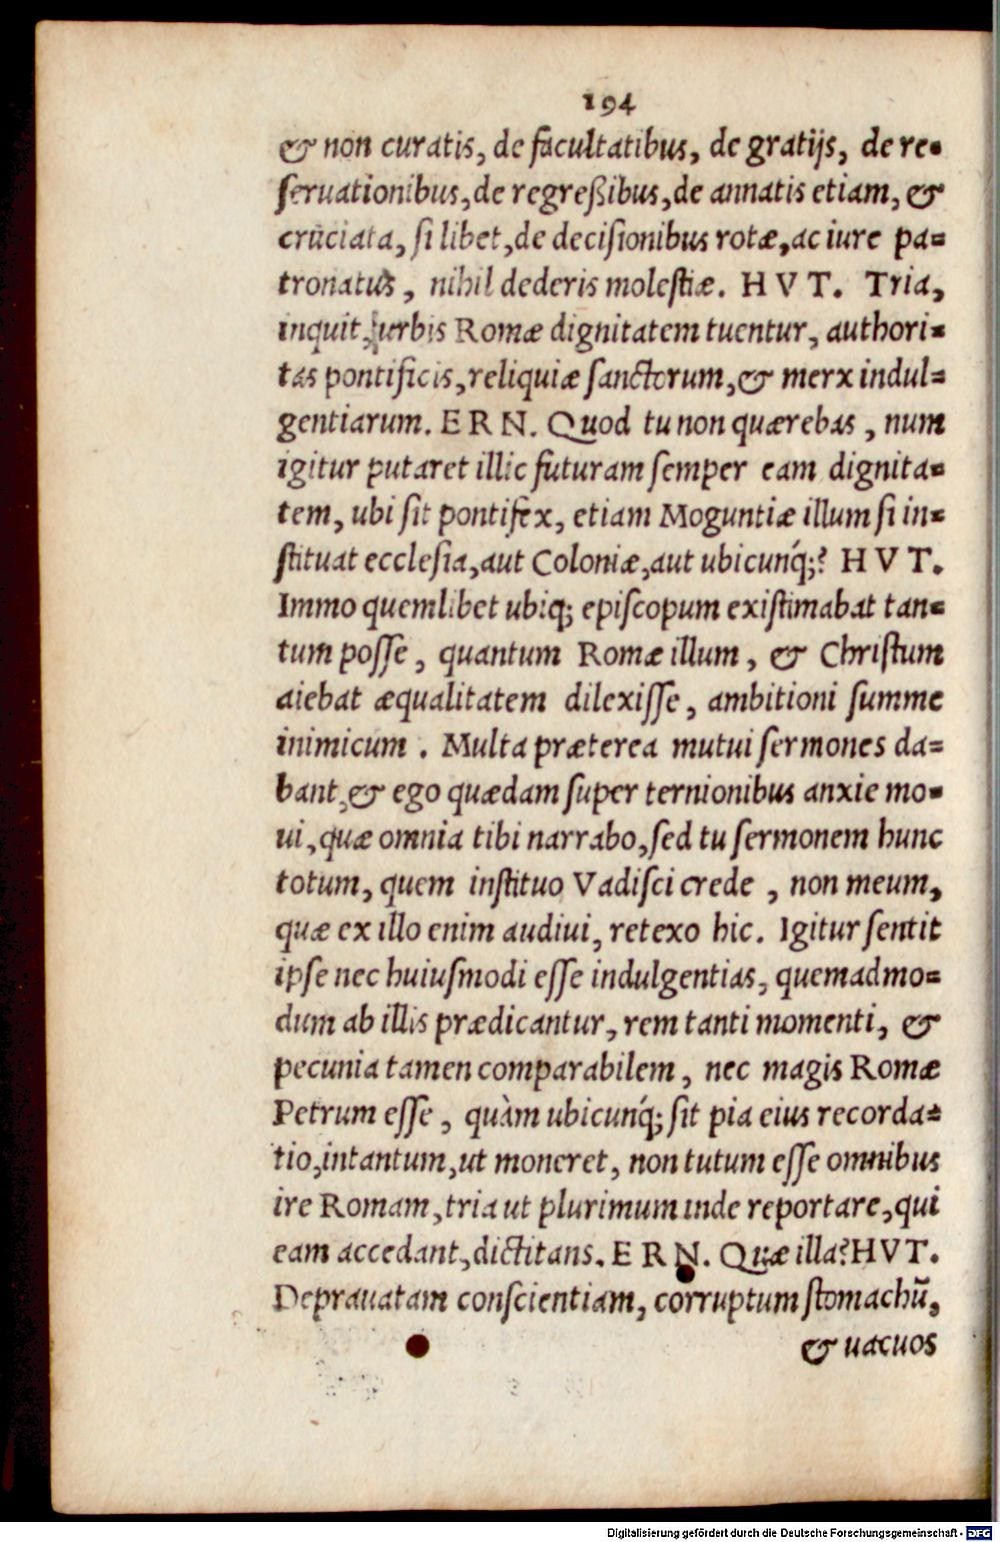 194
& non curatis, de facultatibus, de gratijs, de re-
ſeruationibus, de regreßibus, de annatis etiam, &
cruciata, ſi libet, de deciſionibus rotæ, ac iure pa=
tronatus, nihil dederis moleſtiæ. H V T. Tria,
inquit, urbis Romæ dignitatem tuentur, authori-
tas pontificis, reliquiæ ſanctorum, & merx indul=
gentiarum. E R N. Quod tu non quærebas, num
igitur putaret illic futuram ſemper eam dignita-
tem, ubi ſit pontifex, etiam Moguntiæ illum ſi in-
ſtituat eccleſia, aut Coloniæ, aut ubicunq́;? H V T.
Immo quemlibet ubiq; epiſcopum exiſtimabat tan-
tum poſſe, quantum Romæ illum, & Chriſtum
aiebat æqualitatem dilexiſſe, ambitioni ſumme
inimicum. Multa præterea mutui ſermones da=
bant, & ego quædam ſuper ternionibus anxie mo-
ui, quæ omnia tibi narrabo, ſed tu ſermonem hunc
totum, quem inſtituo Vadiſci crede, non meum,
quæ ex illo enim audiui, retexo hic. Igitur ſentit
ipſe nec huiuſmodi eſſe indulgentias, quemadmo=
dum ab illis prædicantur, rem tanti momenti, &
pecunia tamen comparabilem, nec magis Romæ
Petrum eſſe, quàm ubicunq́; ſit pia eius recorda=
tio, intantum, ut moneret, non tutum eſſe omnibus
ire Romam, tria ut plurimum inde reportare, qui
eam accedant, dictitans. E R N. Quæ illa? H V T.
Deprauatam conſcientiam, corruptum ſtomachū,
& uacuos
Digitalisierung gefördert durch die Deutsche Forschungsgemeinschaft - DFG